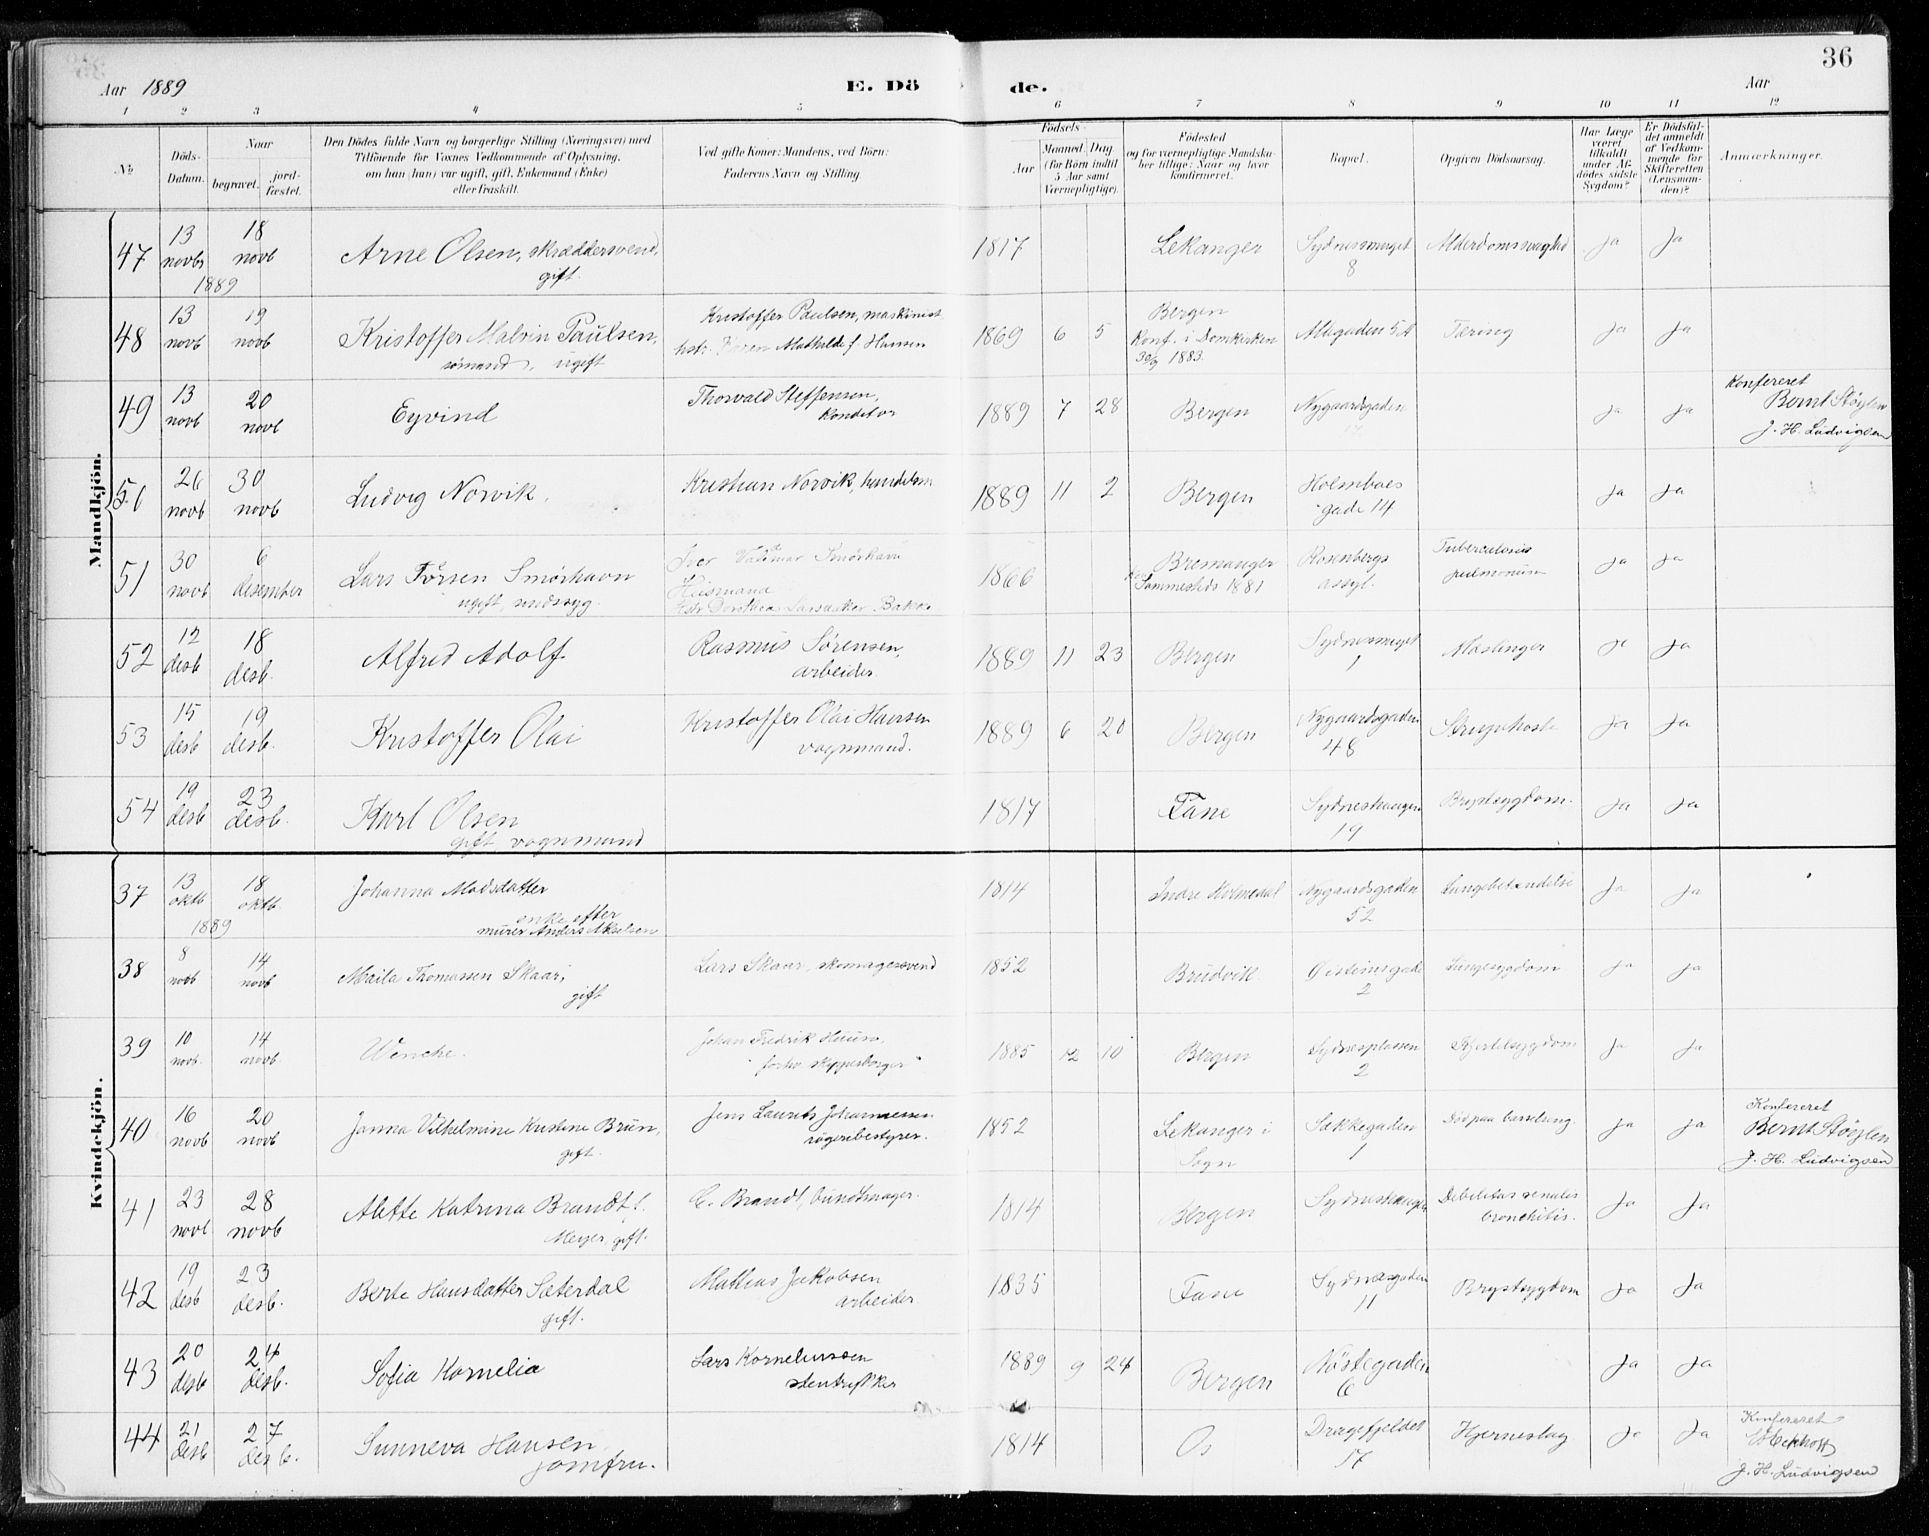 36
Aar 1889
E. Dö de.
Aar
1 2 3 4 5 6 7 8 9 10 11 12
No
Döds-Datum.
Naar
begravet.
jord-fæstet.
Den Dödes fulde Navn og borgerlige Stilling (Næringsvei) med
Tilföiende for Voxnes Vedkommende af Oplysning,
om han (hun) var ugift, gift, Enkemand (Enke)
eller fraskilt.
Ved gifte Koner: Mandens, ved Börn:
Faderens Navn og Stilling.
Födsels-
Aar
Maaned. Dag.
(for Börn indtil
5 Aar samt
Værnepligtige).
Födested
og for værnepligtige Mandska-
ber tillige: Naar og hvor
konfirmeret.
Bopæl.
Opgiven Dödsaarsag.
Har Læge
været
tilkaldt
under Af-
dödes sidste
Sygdom?
Er Dödsfal-
det anmeldt
af Vedkom-
mende for
Skifteretten
(Lensman-
den)?
Anmærkninger.
Mandkjön.
47 13 novbr 1889 18 novb Arne Olsen, skræddersvend, gift. 1817 Lekanger Sydnessmuget 8 Alderdomssvaghed Ja Ja
48 13 novb 19 novb Kristoffer Malvin Paulsen, sömand, ugift Kristoffer Paulsen, maskinist hstr. Karen Mathilde f. Hansen 1869 6 5 Bergen Konf. i Domkirken 30/9 1883. Allegaden 5A Tæring ja ja
49 13 novb 20 novb Eyvind Thorvald Steffensen, Konditor 1889 7 28 Bergen Nygaardsgaden ja ja Konfereret Bernt Støylen J. H. Ludvigsen
50 26 novb 30 novb Ludvig Norvik. Kristian Norvik, handelsm 1889 11 2 Bergen Holmboes gade 14 ja ja
51 30 novb 6 desember Lars Iversen Smörhavn ugift, sindssyg. Iver Smörhavn Husmand 1866 Bremanger Sammesteds 1881 Rosenbergs assyl. Tuberculosis pulmonum ja ja
52 12 desb 18 desb. Alfred Adolf Rasmus Sörensen, arbeider. 1889 11 23 Bergen Sydnessmuget 1 Mæslinger ja ja
53 15 desb 19 desb. Kristoffer Olai Kristoffer Olai Hansen vognmand. 1889 6 20 Bergen Nygaardsgaden 48 Strupehoste ja ja
54 19 desb 23 desb. Karl Olsen gift vognmand 1817 Fane Sydneshaugen 19 Brystsygdom. ja ja
Kvindekjön.
37 13 oktb 1889 18 oktb. Johanna Madsdatter enke efter murer Anders Akselsen 1814 Indre Holmedal Nygaardsgaden 52 Lungebetændelse ja ja
38 8 novb 14 novb Maila Thomassen Skaar, gift Lars Skaar, skomagersvend 1852 Brudvik Øisteinsgade 2 Lungesygdom ja ja
39 10 novb. 14 novb. Wenche. Johan Fredrik Huun, forhv. skipperborger 1885 12 10 Bergen Sydnæsplassen 2 Kjertelsygdom ja ja
40 16 novb 20 novb Janna Vilhelmine Kristine Brun, gift. Jens Laurits Johannessen bestyrer. 1852 Lekanger i Sogn Sækkegaden 1 Död paa barselseng. ja ja Konfereret Bernt Støylen J. H. Ludvigsen
41 23 novb 28 novb Alette Katrina Brandt f. Meyer, gift. C. Brandt, bundtmager. 1814 Bergen Sydneshaugen Debilitas senalis bronchitis. ja ja
42 19 desb 23 desb. Berte Hansdatter Sæterdal gift. Mathias Jakobsen arbeider 1835 Fane Sydnæsgaden 11 Brystsygdom ja ja
43 20 desb 24 desb. Sofia Kornelia Lars Korneliussen stentrykker 1889 9 24 Bergen Nöstegaden 6 ja ja
44 21 desb 27 desb. Sunneva Hansen jomfru. 1814 Os Dragefjeldet 17 Hjerneslag ja ja Konfereret J. H. Ludvigsen